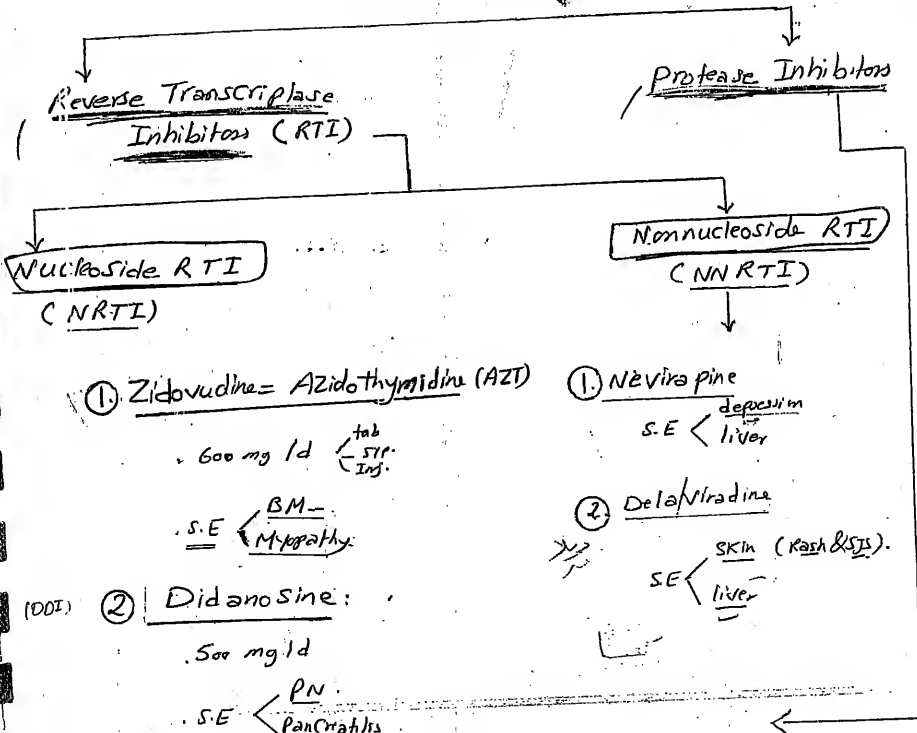 Reverse Transcriptase
Inhibitors (RTI)
Protease Inhibitors
Nucleoside RTI
(NRTI)
Nonnucleoside RTI
(NNRTI)
①. Zidovudine = Azidothymidine (AZT)
. 600 mg /d
tab
syp.
Inj.
. S.E
BM-
Myopathy.
(DDI) ② Didanosine:
. 500 mg/d
. S.E
PN.
Pancreatitis
①. Nevirapine
S.E
depression
liver
② Delaviradine
S.E
Skin (Rash & SJS).
liver